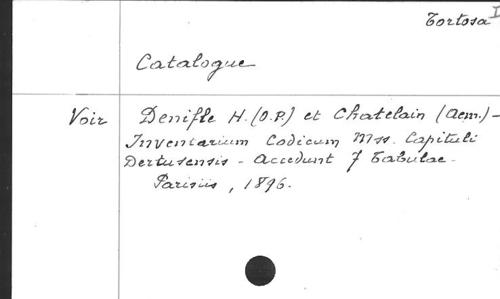 Tortosa I
Catalogue
Voir Denifle H. (O.P.) et Chatelain (Aem.) -
Inventarium Codicum Mss. Capituli
Dertusensis - Accedunt 7 Tabulae -
Parisiis, 1896.